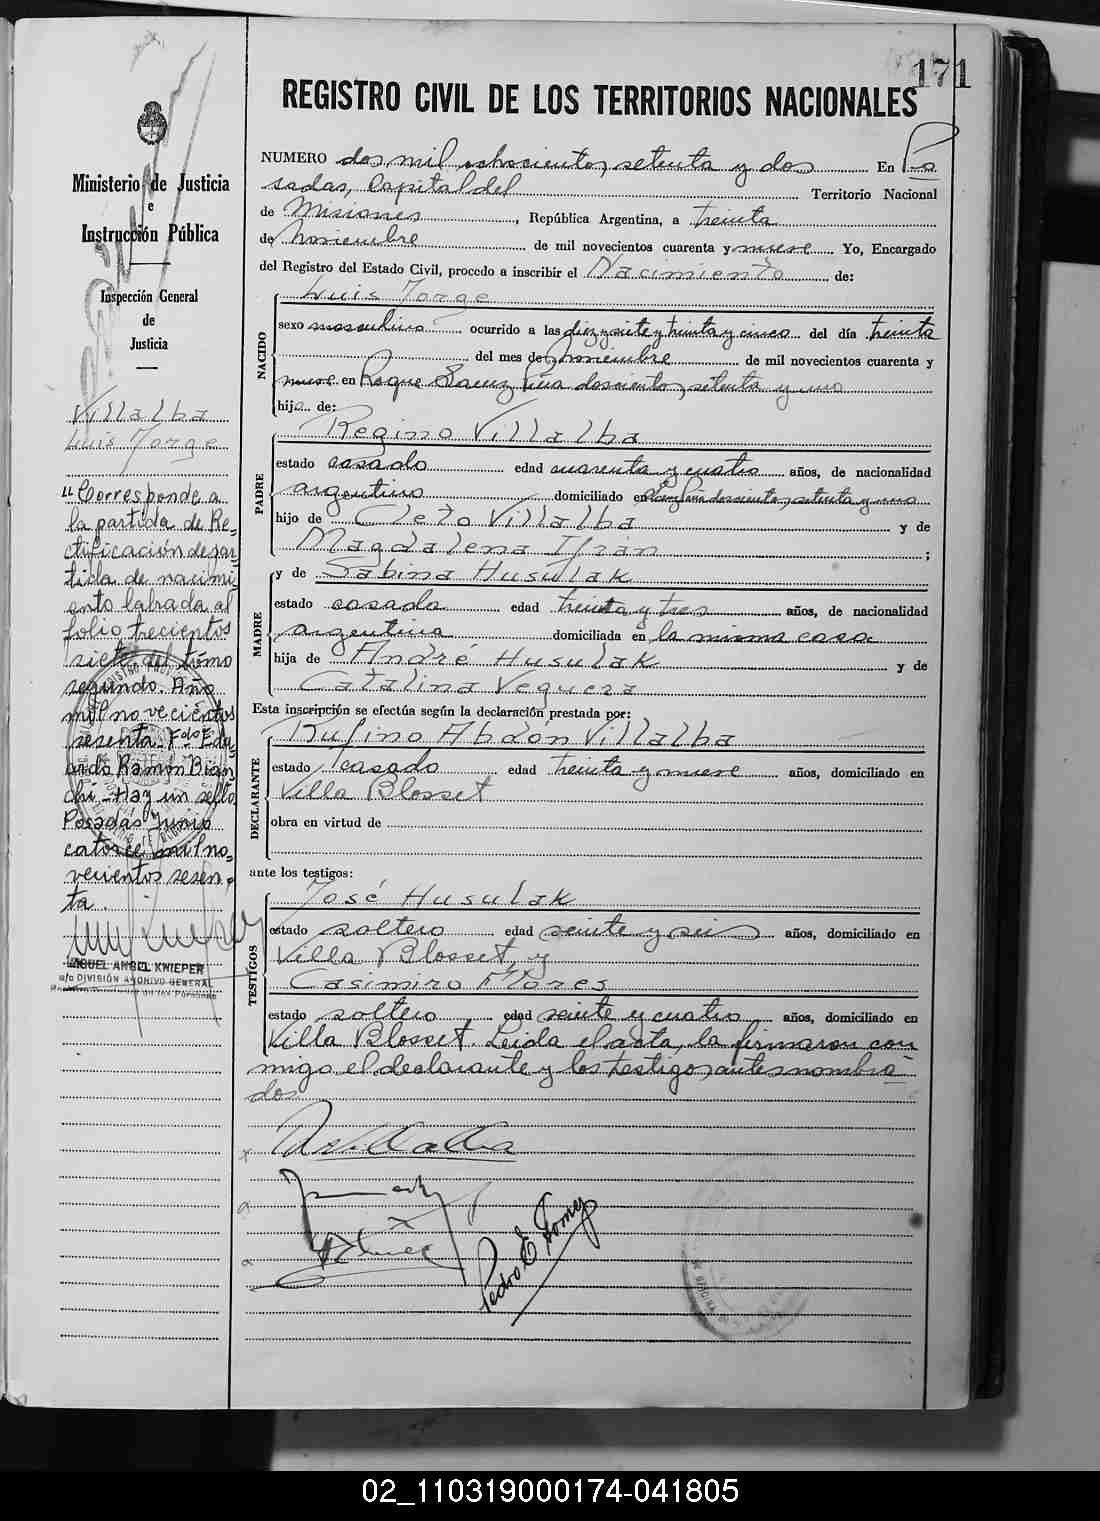 171
REGISTRO CIVIL DE LOS TERRITORIOS NACIONALES
Ministerio de Justicia
e
Instrucción Pública
Inspección General
de
Justicia
Villalba
Luis Jorge
"Corresponde a
la partida de Re-
ctificación de par-
tida de nacimi-
ento labrada al
folio trecientos
siete del tómo
segundo. Año
mil novecientos
sesenta. Fdo: Edu-
ardo Ramón Bian-
chi - Hay un sello
Posadas Junio
catorce mil no-
vecientos sesen-
ta.
MIGUEL ANGEL KNIEPER
a/c DIVISIÓN ARCHIVO GENERAL
NUMERO dos mil ochocientos setenta y dos En Po
sadas, Capital del Territorio Nacional
de Misiones, República Argentina, a treinta
de Noviembre de mil novecientos cuarenta y nueve Yo, Encargado
del Registro del Estado Civil, procedo a inscribir el Nacimiento de:
NACIDO
Luis Jorge
sexo masculino ocurrido a las diez y siete y treinta y cinco del día treinta
del mes de Noviembre de mil novecientos cuarenta y
nueve en Roque Saenz Peña doscientos setenta y uno
hijo de:
PADRE
Regino Villalba
estado casado edad cuarenta y cuatro años, de nacionalidad
argentino domiciliado en doscientos setenta y uno
hijo de Cleto Villalba y de
Magdalena Ifrán ;
MADRE
y de Sabina Husulak
estado casada edad treinta y tres años, de nacionalidad
argentina domiciliada en la misma casa
hija de André Husulak y de
Catalina Veguera
Esta inscripción se efectúa según la declaración prestada por:
DECLARANTE
Rufino Abdón Villalba
estado casado edad treinta y nueve años, domiciliado en
Villa Blosset
obra en virtud de
ante los testigos:
TESTIGOS
José Husulak
estado soltero edad veinte y seis años, domiciliado en
Villa Blosset, y
Casimiro Flores
estado soltero edad veinte y cuatro años, domiciliado en
Villa Blosset. Leida el acta, la firmaron con
migo el declarante y los testigos antes nombra
dos
Pedro E. Gomez
02_110319000174-041805